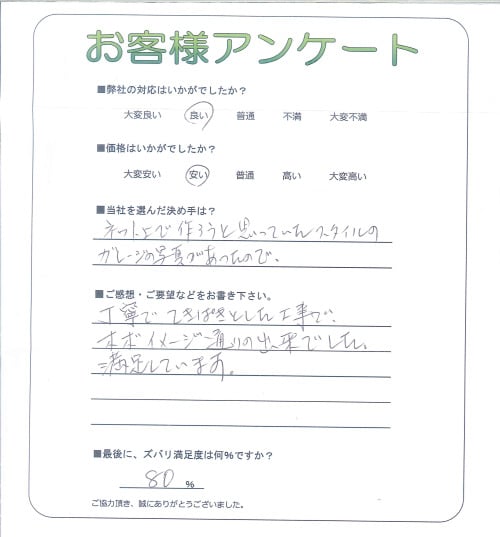 お客様アンケート
■弊社の対応はいかがでしたか？
大変良い 良い 普通 不満 大変不満
■価格はいかがでしたか？
大変安い 安い 普通 高い 大変高い
■当社を選んだ決め手は？
ネット上で作ろうと思っていたスタイルの
ガレージの写真があったので。
■ご感想・ご要望などをお書き下さい。
丁寧で てきぱきとした工事で、
ホボイメージ通りの出来でした。
満足しています。
■最後に、ズバリ満足度は何％ですか？
80 ％
ご協力頂き、誠にありがとうございました。